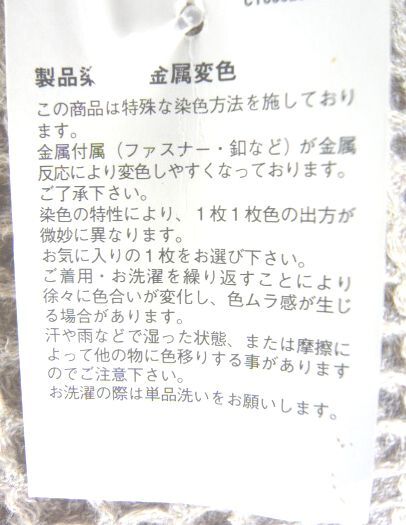 製品染 金属変色
この商品は特殊な染色方法を施しており
ます。
金属付属（ファスナー・釦など）が金属
反応により変色しやすくなっております。
ご了承下さい。
染色の特性により、１枚１枚色の出方が
微妙に異なります。
お気に入りの１枚をお選び下さい。
ご着用・お洗濯を繰り返すことにより
徐々に色合いが変化し、色ムラ感が生じ
る場合があります。
汗や雨などで湿った状態、または摩擦に
よって他の物に色移りする事があります
のでご注意下さい。
お洗濯の際は単品洗いをお願いします。